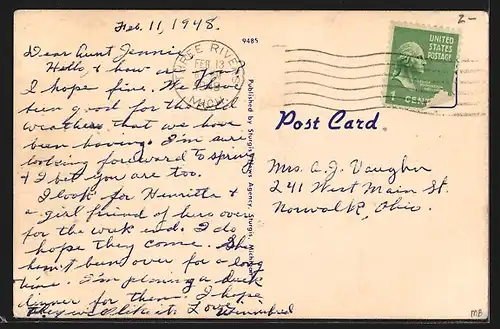 Feb. 11, 1948.
Dear Aunt Jennie
Hello, & how are you
I hope fine. We have
been good for the
weather that we have
been having. I'm sure
looking foreward to spring
& I bet you are too.
I look for Henrietta &
a girl friend of hers over
for the week end. I do
hope they come. She
hasn't been over for a long
time. I'm planing a duck
dinner for them. I hope
they will like it. Love
Winnifred
9485
THREE RIVERS
FEB 13
MICH.
Published by Sturgis News Agency, Sturgis, Michigan
2-
UNITED
STATES
POSTAGE
1 CENT
Post Card
Mrs. A. J. Vaughn
241 West Main St.
Norwalk, Ohio.
MB